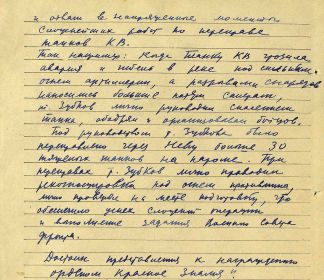 и отваги в напряженные моменты
сложнейших работ по переправе
танков КВ.
Так например: Когда танку КВ грозила
авария и гибель в реке под сильным
огнем артиллерии, а разрывами снарядов
наносились большие потери
т. Зубков лично руководил спасением
танка, ободрял и организовывал бойцов.
Под руководством т. Зубкова было
переправлено через Неву больше 30
тяжелых танков на пароме. При
переправах т. Зубков лично проводил
рекогносцировки под огнем противника,
лично проверял на месте подготовку, что
обеспечило успех сложной операции
и выполнение задания Военного Совета
фронта.
Достоин представления к награждению
орденом Красное Знамя"